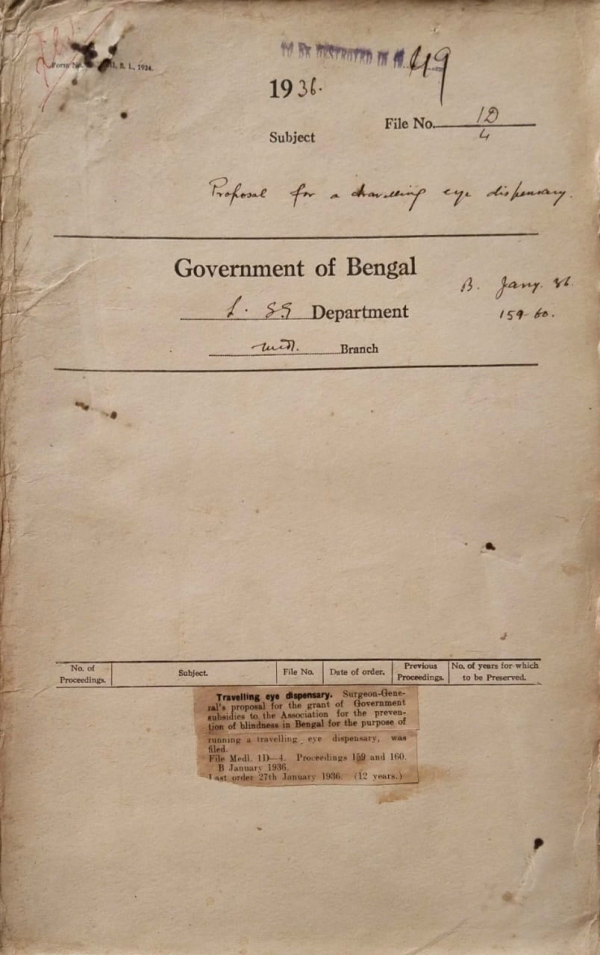 TO BE DESTROYED IN 19 49
S. I., 1924.
1936.
File No. 1D/4
Subject
Proposal for a travelling eye dispensary.
Government of Bengal
B. Jany. 36
L. SG Department
159-60.
Medl. Branch
No. of Proceedings. Subject. File No. Date of order. Previous Proceedings. No. of years for which to be Preserved.
Travelling eye dispensary. Surgeon-Gene-
ral's proposal for the grant of Government
subsidies to the Association for the preven-
tion of blindness in Bengal for the purpose of
running a travelling eye dispensary, was
filed.
File Medl. 1D—4. Proceedings 159 and 160.
B January 1936.
Last order 27th January 1936. (12 years.)